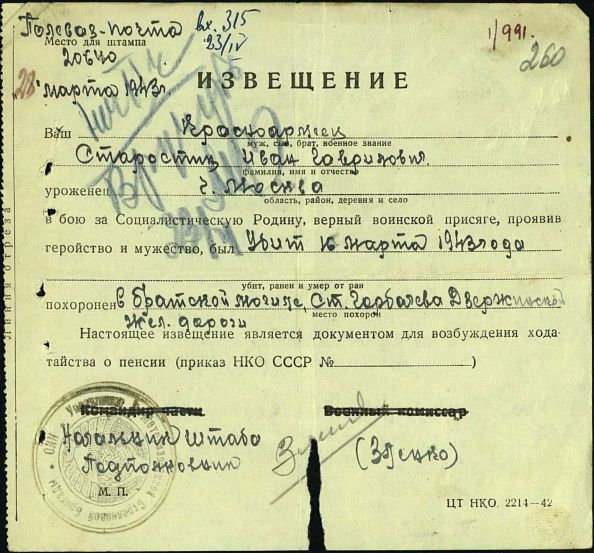 Полевая-почта
Место для штампа
20640
28 марта 1943г.
вх. 315
23/IV
1/991.
260
ИЗВЕЩЕНИЕ
Ваш Красноармеец
муж, сын, брат, военное звание
Старостин Иван Гаврилович
фамилия, имя и отчество
уроженец г. Москва
область, район, деревня и село
в бою за Социалистическую Родину, верный воинской присяге, проявив
геройство и мужество, был Убит 16 марта 1943 года
убит, ранен и умер от ран
похоронен в братской могиле, Ст. Горбачева Дзержинской
место похорон
жел. дороги
Настоящее извещение является документом для возбуждения хода-
тайства о пенсии (приказ НКО СССР №)
Командир части
Военный комиссар
Начальник штаба
Подполковник
М. П.
ЦТ НКО. 2214—42
Линия отреза